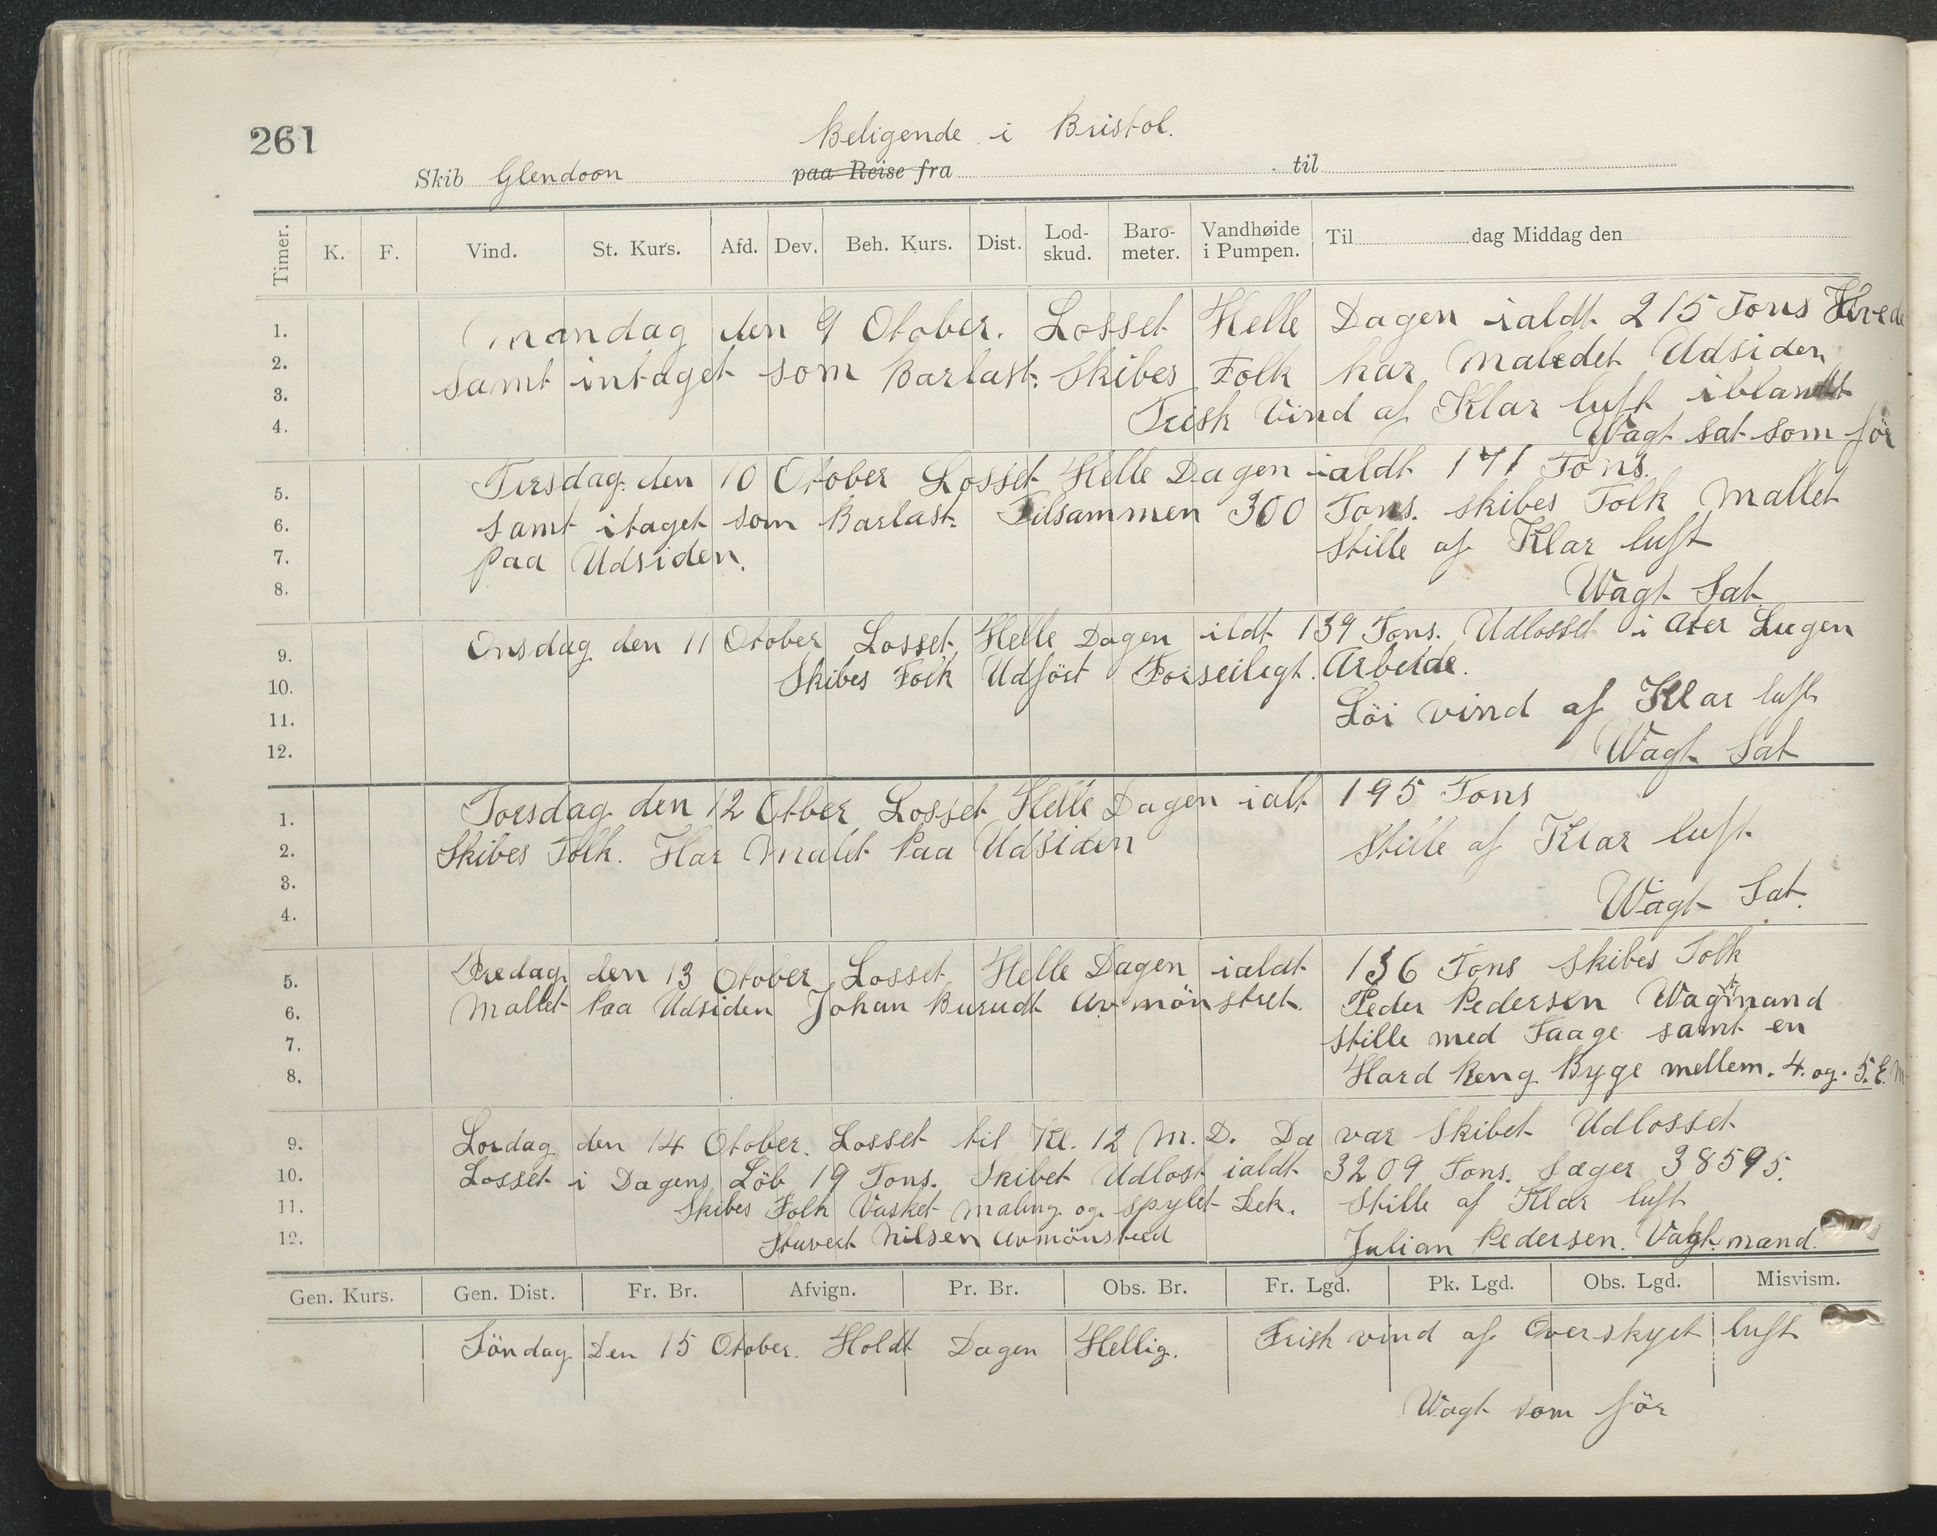 261
Beligende i Bristol.
Skib Glendoon paa Reise fra til
Timer. K. F. Vind. St. Kurs. Afd. Dev. Beh. Kurs. Dist. Lod-skud. Baro-meter. Vandhøide i Pumpen. Til dag Middag den
1. Mandag den 9 Otober. Losset Helle Dagen ialdt 215 Tons Hvede
2. Samt intaget som Barlast. Skibes Folk har Maledet Udsiden
3. Frisk Vind af Klar luft iblandt
4. Wagt sat som för
5. Tirsdag den 10 Otober Losset Helle Dagen ialdt 171 Tons.
6. Samt itaget som Barlast Tilsammen 300 Tons. Skibes Folk Mallet
7. Paa Udsiden. Stille af Klar luft
8. Wagt Sat
9. Onsdag den 11 Otober Losset Helle Dagen ildt 139 Tons. Udlosset i Ater Lugen
10. Skibes Folk Udföst Forseilegt. Arbeide.
11. Löi vind af Klar luft
12. Wagt Sat
1. Torsdag den 12 Otber Losset Helle Dagen ialt 195 Tons
2. Skibes Folk. Har Malet Paa Udsiden Stille af Klar luft
3.
4. Wagt Sat.
5. Fredag den 13 Otober Losset Helle Dagen ialdt 136 Tons Skibes Folk
6. Mallet Paa Udsiden Johan Burudt Avmönstret. Peder Pedersen Wagtmand
7. Stille med Taage samt en
8. Hard Reng Byge mellem. 4. og. 5. E. M
9. Lordag den 14 Otober. Losset til Kl. 12 M. D. Da var Skibet Udlosset
10. Losset i Dagens Löb 19 Tons. Skibet Udlost ialdt 3209 Tons. Sæger 38595.
11. Skibes Folk Vasket Maling og spylet Dek. Stille af Klar luft
12. Stuvert Nilsen Avmönstred Julian Pedersen. Vagtmand.
Gen. Kurs. Gen. Dist. Fr. Br. Afvign. Pr. Br. Obs. Br. Fr. Lgd. Pk. Lgd. Obs. Lgd. Misvism.
Söndag Den 15 Otober. Holdt Dagen Hellig. Frisk vind af Overskyet luft
Wagt som för